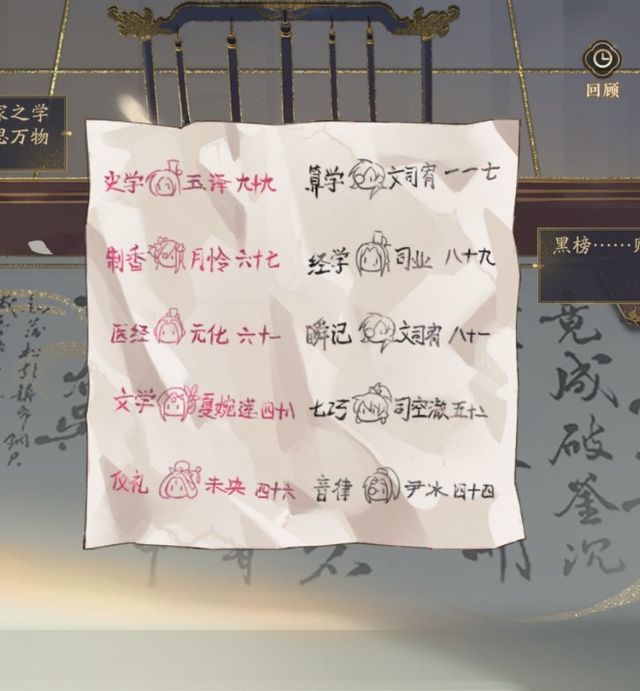 回顾
家之学
思万物
史学 玉泽 九十九 算学 文司宥 一一七
制香 月恰 六十七 经学 司业 八十九
医经 元化 六十一 瞬记 文司宥 八十一
文学 夏婉莲 四十八 七巧 司空澈 五十二
仪礼 未央 四十六 音律 尹冰 四十四
黑榜……
竟成
破釜沉